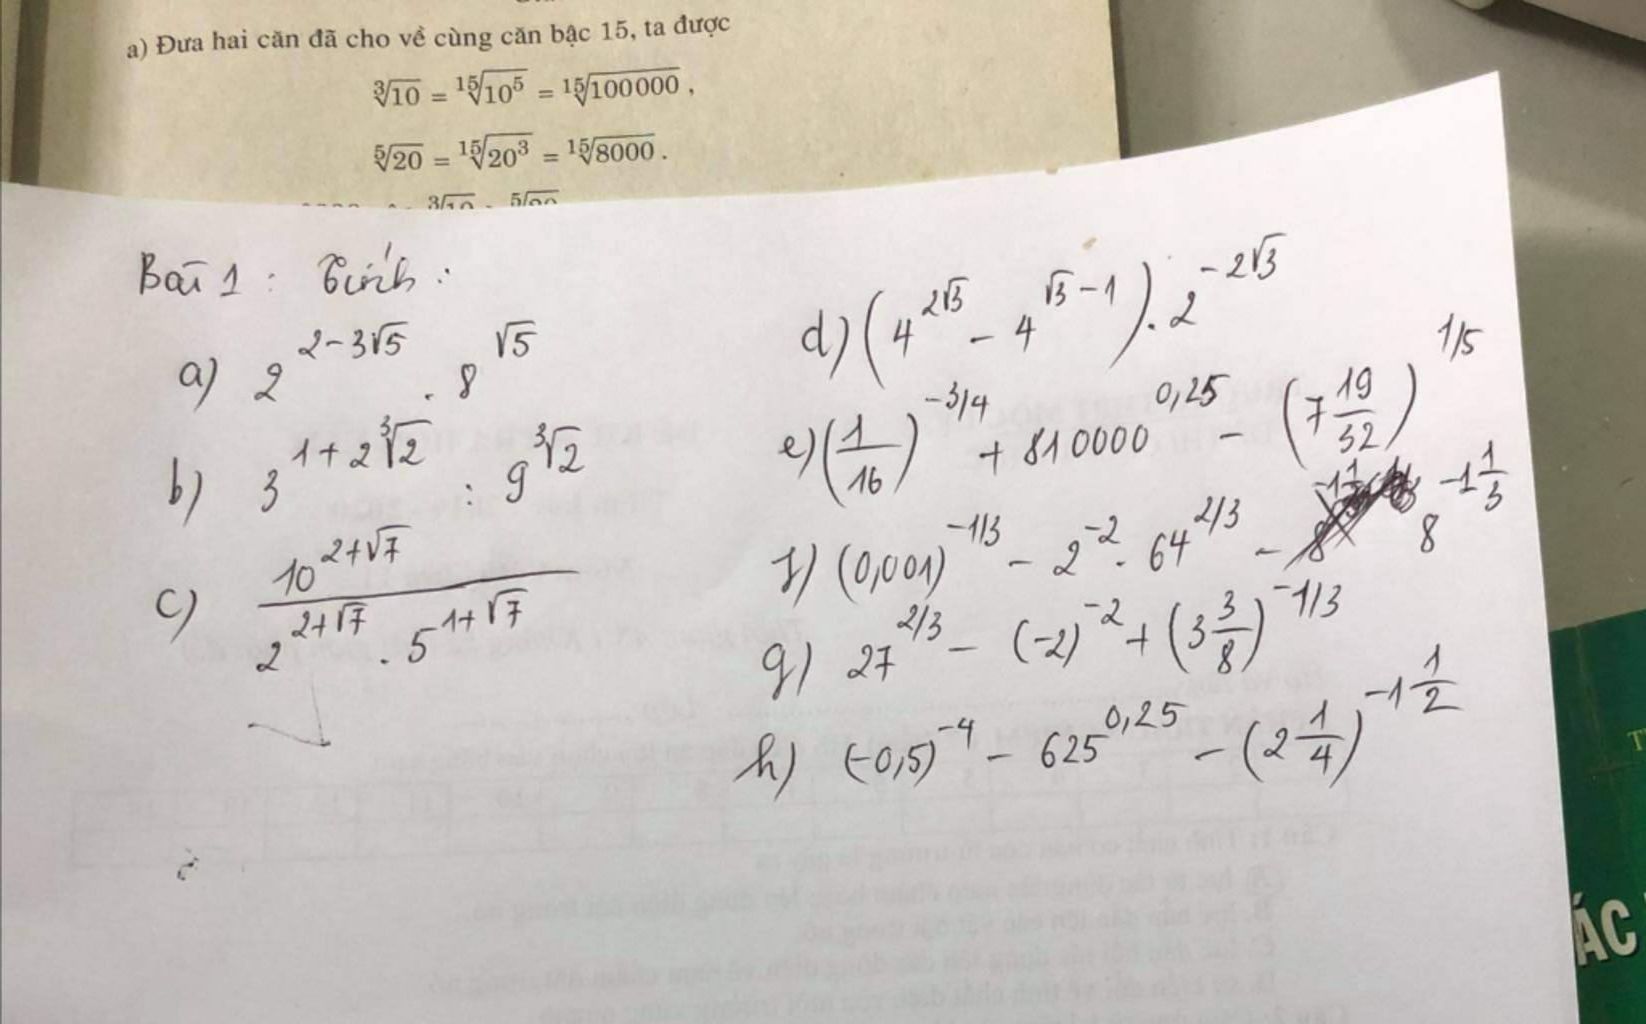 a) Đưa hai căn đã cho về cùng căn bậc 15, ta được
∛10 = ¹⁵√10⁵ = ¹⁵√100000 ,
⁵√20 = ¹⁵√20³ = ¹⁵√8000 .
Bài 1 : Tính :
a) 2^(2-3√5) . 8^(√5)
b) 3^(1+2∛2) : 9^(∛2)
c) 10^(2+√7) / (2^(2+√7) . 5^(1+√7))
d) (4^(2√3) - 4^(√3-1)) . 2^(-2√3)
e) (1/16)^(-3/4) + 810000^(0,25) - (7 19/32)^(1/5)
f) (0,001)^(-1/3) - 2^(-2) . 64^(2/3) - 8^(-1 1/3)
g) 27^(2/3) - (-2)^(-2) + (3 3/8)^(-1/3)
h) (-0,5)^(-4) - 625^(0,25) - (2 1/4)^(-1 1/2)
ÁC